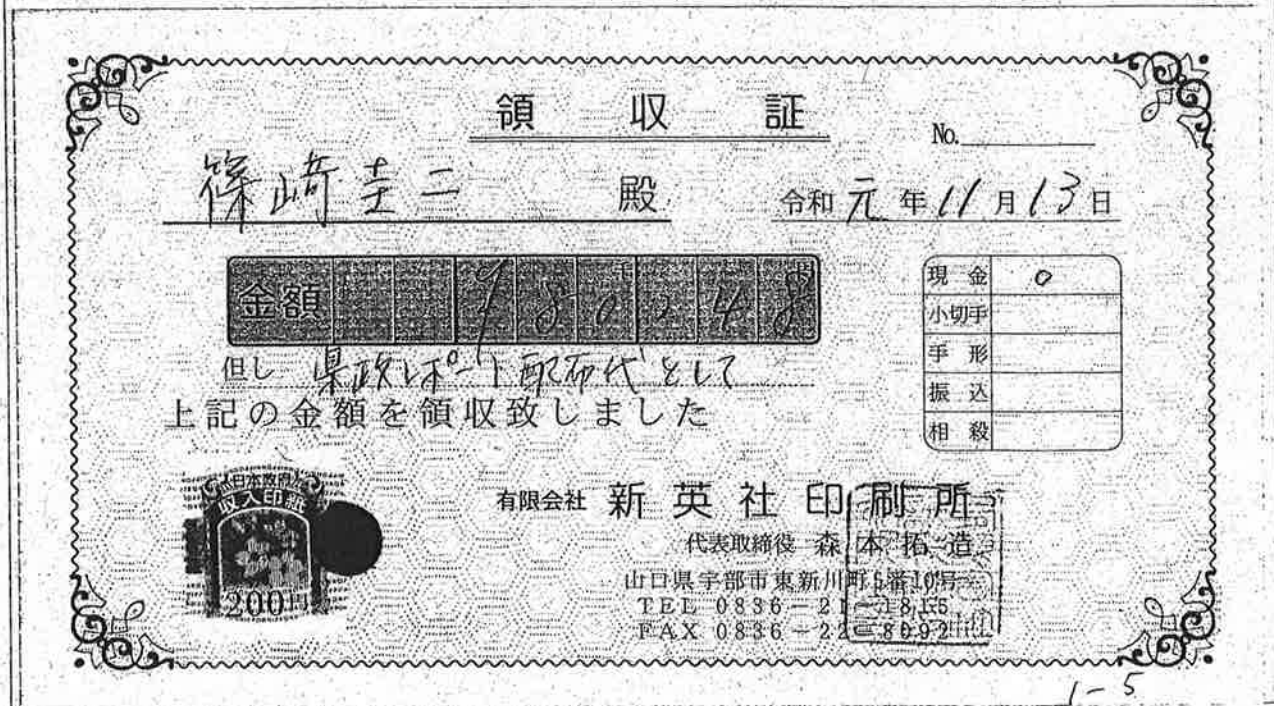 領収証
No.
篠崎圭二 殿
令和元年11月13日
金額 980248
現金 0
小切手
手形
振込
相殺
但し 県政レポート配布代として
上記の金額を領収致しました
日本政府
収入印紙
200円
有限会社 新英社印刷所
代表取締役 森本拓造
山口県宇部市東新川町5番10号
TEL 0836-21-1815
FAX 0836-22-8092
1-5